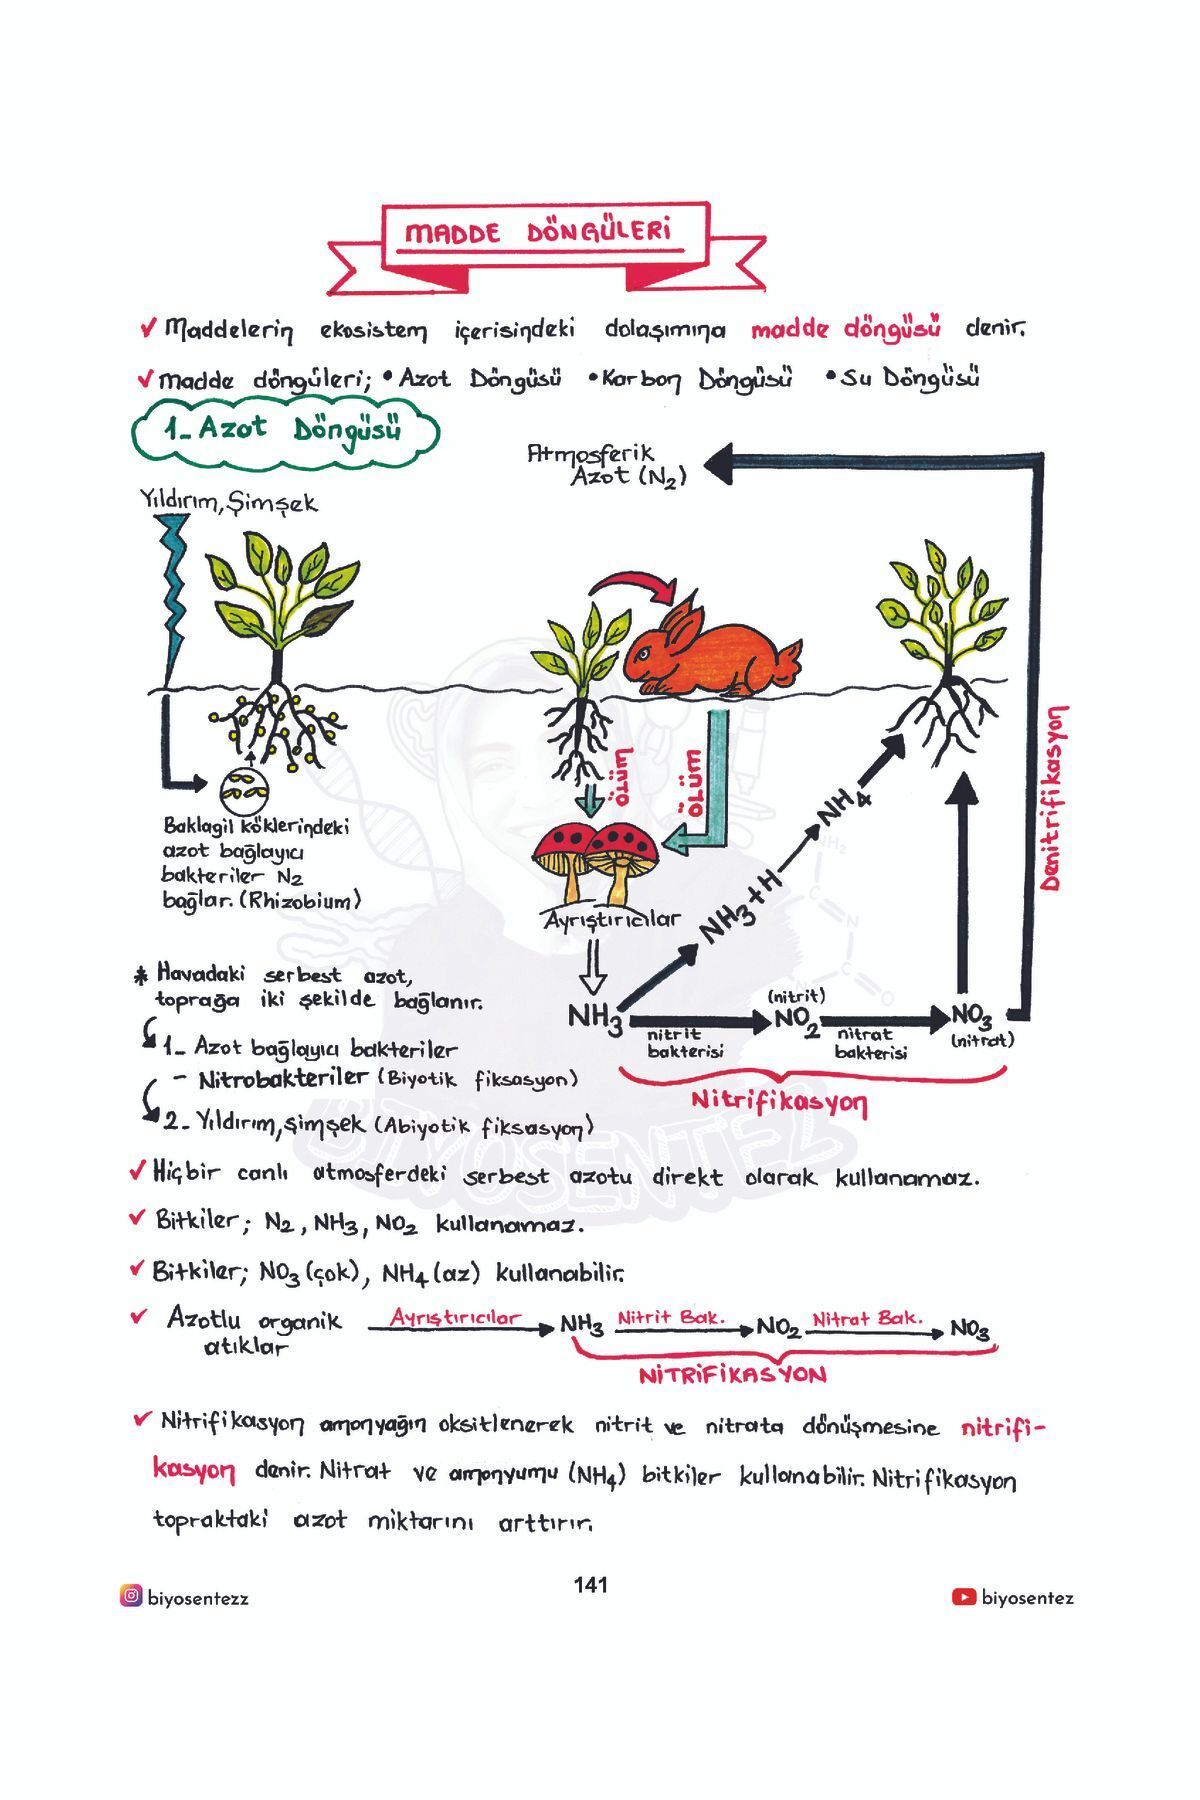 MADDE DÖNGÜLERİ
✓ Maddelerin ekosistem içerisindeki dolaşımına madde döngüsü denir.
✓ madde döngüleri; • Azot Döngüsü • Karbon Döngüsü • Su Döngüsü
1- Azot Döngüsü
Atmosferik
Azot (N2)
Yıldırım, Şimşek
ÖLÜM
ÖLÜM
Denitrifikasyon
Baklagil köklerindeki
azot bağlayıcı
bakteriler N2
bağlar. (Rhizobium)
Ayrıştırıcılar
NH3+H
NH4
* Havadaki serbest azot,
toprağa iki şekilde bağlanır.
1- Azot bağlayıcı bakteriler
- Nitrobakteriler (Biyotik fiksasyon)
2- Yıldırım, şimşek (Abiyotik fiksasyon)
NH3
nitrit
bakterisi
(nitrit)
NO2
nitrat
bakterisi
NO3
(nitrat)
Nitrifikasyon
BİYOSENTEZ
NH2
C
N
C
O
✓ Hiçbir canlı atmosferdeki serbest azotu direkt olarak kullanamaz.
✓ Bitkiler; N2, NH3, NO2 kullanamaz.
✓ Bitkiler; NO3 (çok), NH4 (az) kullanabilir.
✓ Azotlu organik Ayrıştırıcılar NH3 Nitrit Bak. NO2 Nitrat Bak. NO3
atıklar
NİTRİFİKASYON
✓ Nitrifikasyon amonyağın oksitlenerek nitrit ve nitrata dönüşmesine nitrifi-
kasyon denir. Nitrat ve amonyumu (NH4) bitkiler kullanabilir. Nitrifikasyon
topraktaki azot miktarını arttırır.
141
biyosentezz
biyosentez